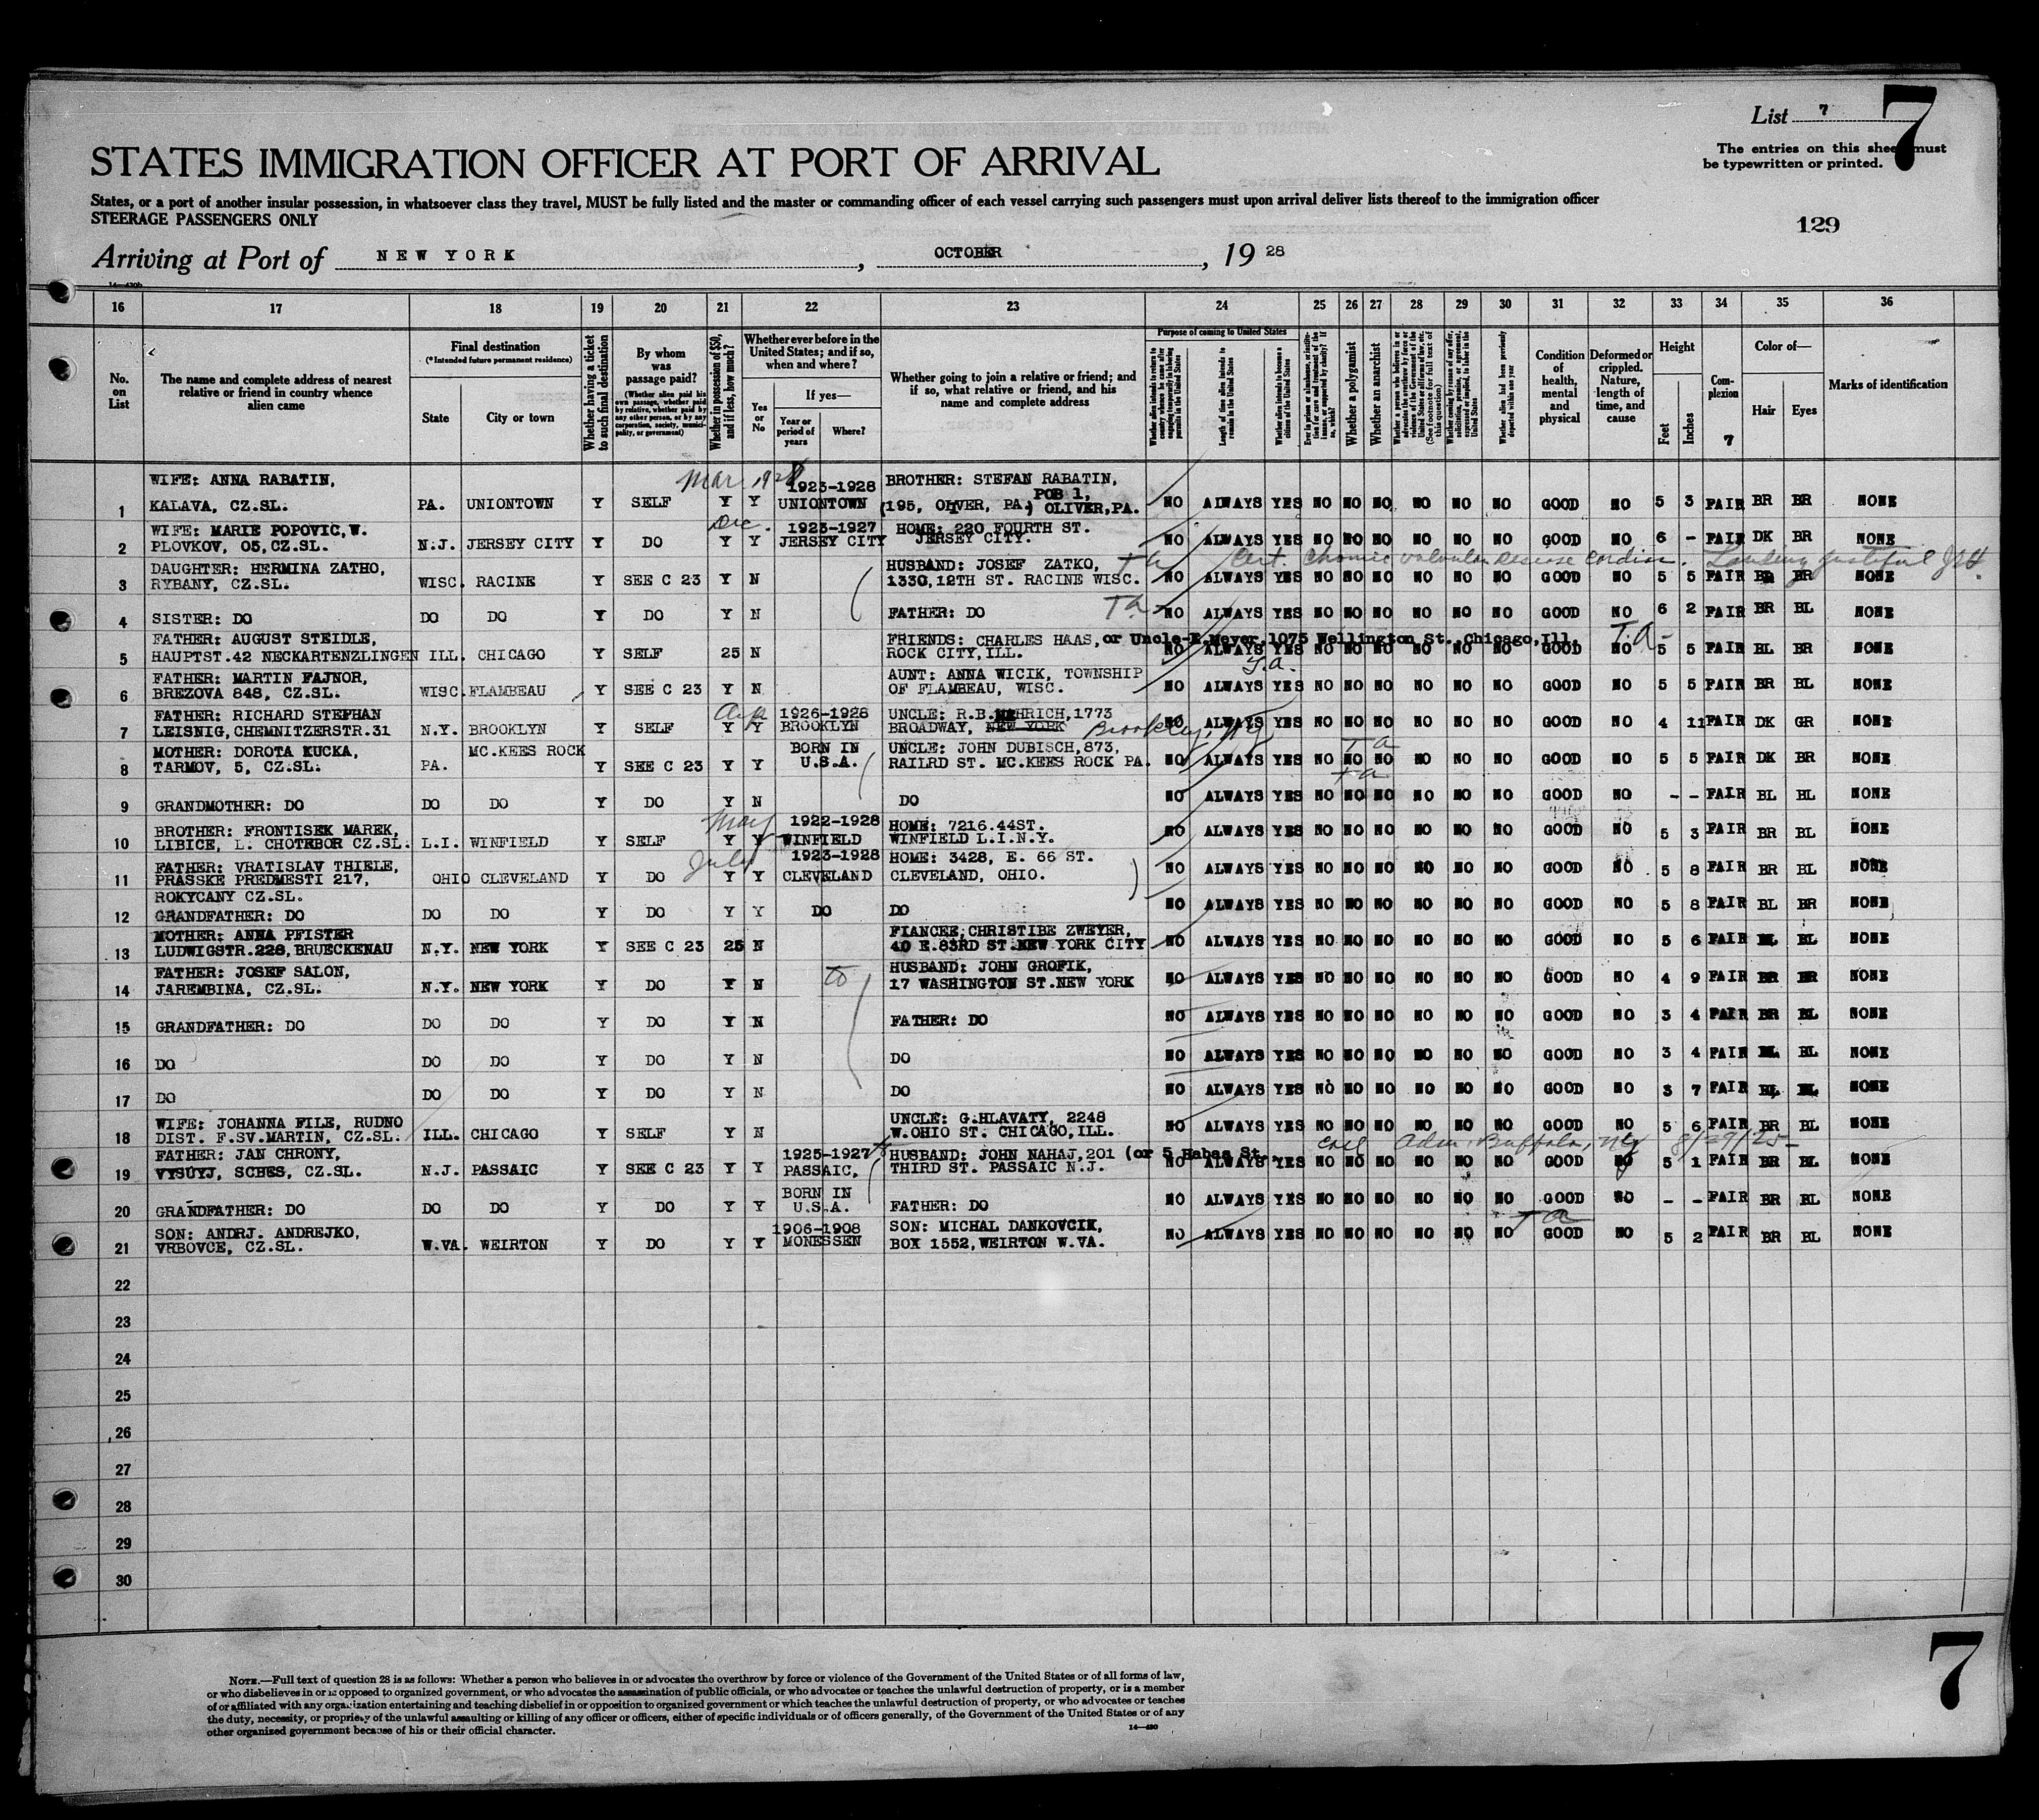 List 7
7
The entries on this sheet must
be typewritten or printed.
STATES IMMIGRATION OFFICER AT PORT OF ARRIVAL
States, or a port of another insular possession, in whatsoever class they travel, MUST be fully listed and the master or commanding officer of each vessel carrying such passengers must upon arrival deliver lists thereof to the immigration officer
STEERAGE PASSENGERS ONLY
129
Arriving at Port of NEW YORK, OCTOBER, 1928
14—430b
16 17 18 19 20 21 22 23 24 25 26 27 28 29 30 31 32 33 34 35 36
No. on List
The name and complete address of nearest relative or friend in country whence alien came
Final destination
(*Intended future permanent residence)
State
City or town
Whether having a ticket to such final destination
By whom was passage paid?
(Whether alien paid his own passage, whether paid by relative, whether paid by any other person, or by any corporation, society, municipality, or government)
Whether in possession of $50, and if less, how much?
Whether ever before in the United States; and if so, when and where?
Yes or No
If yes—
Year or period of years
Where?
Whether going to join a relative or friend; and if so, what relative or friend, and his name and complete address
Purpose of coming to United States
Length of time alien intends to remain in the United States
Whether alien intends to become a citizen of the United States
Whether a polygamist
Whether an anarchist
Whether alien had been previously deported within one year
Condition of health, mental and physical
Deformed or crippled. Nature, length of time, and cause
Height
Feet
Inches
Complexion
7
Color of—
Hair
Eyes
Marks of identification
WIFE: ANNA RABATIN, Mar 1928 1923-1928 BROTHER: STEFAN RABATIN,
1 KALAVA, CZ.SL. PA. UNIONTOWN Y SELF Y Y UNIONTOWN (195, OLIVER, PA.) POB 1, OLIVER, PA. NO ALWAYS YES NO NO NO NO NO NO GOOD NO 5 3 FAIR BR BR NONE
WIFE: MARIE POPOVIC, W. Dec. 1923-1927 HOME: 220 FOURTH ST.
2 PLOVKOV, 05, CZ.SL. N.J. JERSEY CITY Y DO Y Y JERSEY CITY JERSEY CITY. NO ALWAYS YES NO NO NO NO NO NO GOOD NO 6 - FAIR DK BR NONE
DAUGHTER: HERMINA ZATHO, HUSBAND: JOSEF ZATKO, Ta Cert. Chronic valvular disease cardiac.
3 RYBANY, CZ.SL. WISC. RACINE Y SEE C 23 Y N 1330, 12TH ST. RACINE WISC. NO ALWAYS YES NO NO NO NO NO NO GOOD NO 5 5 FAIR BL BR NONE
4 SISTER: DO DO DO Y DO Y N FATHER: DO Ta NO ALWAYS YES NO NO NO NO NO NO GOOD NO 6 2 FAIR BR BL NONE
FATHER: AUGUST STEIDLE, FRIENDS: CHARLES HAAS, or Uncle-E.Meyer, 1075 Wellington St., Chicago, Ill. T.A-
5 HAUPTST.42 NECKARTENZLINGEN ILL. CHICAGO Y SELF 25 N ROCK CITY, ILL. NO ALWAYS YES NO NO NO NO NO NO GOOD NO 5 5 FAIR BL BR NONE
FATHER: MARTIN FAJNOR, AUNT: ANNA WICIK, TOWNSHIP T.a.
6 BREZOVA 848, CZ.SL. WISC. FLAMBEAU Y SEE C 23 Y N OF FLAMBEAU, WISC. NO ALWAYS YES NO NO NO NO NO NO GOOD NO 5 5 FAIR BR BL NONE
FATHER: RICHARD STEPHAN 1926-1928 UNCLE: R.B. 1773
7 LEISNIG, CHEMNITZERSTR.31 N.Y. BROOKLYN Y SELF Y Y BROOKLYN BROADWAY, NEW YORK Brooklyn, NY NO ALWAYS YES NO NO NO NO NO NO GOOD NO 4 11 FAIR DK GR NONE
MOTHER: DOROTA KUCKA, MC.KEES ROCK BORN IN UNCLE: JOHN DUBISCH, 873, Ta
8 TARMOV, 5, CZ.SL. PA. Y SEE C 23 Y Y U.S.A. RAILRD ST. MC.KEES ROCK PA. NO ALWAYS YES NO NO NO NO NO NO GOOD NO 5 5 FAIR DK BR NONE
Ta
9 GRANDMOTHER: DO DO DO Y DO Y N DO NO ALWAYS YES NO NO NO NO NO NO GOOD NO - - FAIR BL BL NONE
BROTHER: FRONTISEK MAREK, May 1922-1928 HOME: 7216.44ST.
10 LIBICE, L. CHOTEBOR CZ.SL. L.I. WINFIELD Y SELF Y Y WINFIELD WINFIELD L.I.N.Y. NO ALWAYS YES NO NO NO NO NO NO GOOD NO 5 3 FAIR BR BL NONE
FATHER: VRATISLAV THIELE, July 1923-1928 HOME: 3428, E. 66 ST.
11 PRASSKE PREDMESTI 217, OHIO CLEVELAND Y DO Y Y CLEVELAND CLEVELAND, OHIO. NO ALWAYS YES NO NO NO NO NO NO GOOD NO 5 8 FAIR BR BL NONE
ROKYCANY CZ.SL.
12 GRANDFATHER: DO DO DO Y DO Y Y DO DO NO ALWAYS YES NO NO NO NO NO NO GOOD NO 5 8 FAIR BL BR NONE
MOTHER: ANNA PFISTER FIANCEE; CHRISTIBE ZWEYER,
13 LUDWIGSTR.228, BRUECKENAU N.Y. NEW YORK Y SEE C 23 25 N 40 E.83RD ST.NEW YORK CITY NO ALWAYS YES NO NO NO NO NO NO GOOD NO 5 6 FAIR BL BL NONE
FATHER: JOSEF SALON, HUSBAND: JOHN GROFIK,
14 JAREMBINA, CZ.SL. N.Y. NEW YORK Y DO Y N 17 WASHINGTON ST.NEW YORK NO ALWAYS YES NO NO NO NO NO NO GOOD NO 4 9 FAIR BR BR NONE
15 GRANDFATHER: DO DO DO Y DO Y N FATHER: DO NO ALWAYS YES NO NO NO NO NO NO GOOD NO 3 4 FAIR BR BL NONE
16 DO DO DO Y DO Y N DO NO ALWAYS YES NO NO NO NO NO NO GOOD NO 3 4 FAIR BL BL NONE
17 DO DO DO Y DO Y N DO NO ALWAYS YES NO NO NO NO NO NO GOOD NO 3 7 FAIR BL BL NONE
WIFE: JOHANNA FILE, RUDNO UNCLE: G.HLAVATY, 2248
18 DIST. F.SV.MARTIN, CZ.SL. ILL. CHICAGO Y SELF Y N W.OHIO ST. CHICAGO, ILL. NO ALWAYS YES NO NO NO NO NO NO GOOD NO 5 6 FAIR BR BL NONE
FATHER: JAN CHRONY, 1925-1927 HUSBAND: JOHN NAHAJ, 201 (or 5 Habas St. Adm. Buffalo, NY 8/29/25-
19 VYSUYJ, SCBES, CZ.SL. N.J. PASSAIC Y SEE C 23 Y Y PASSAIC, THIRD ST. PASSAIC N.J. NO ALWAYS YES NO NO NO NO NO NO GOOD NO 5 1 FAIR BR BL NONE
BORN IN
20 GRANDFATHER: DO DO DO Y DO Y Y U.S.A. FATHER: DO NO ALWAYS YES NO NO NO NO NO NO GOOD NO - - FAIR BR BL NONE
SON: ANDRJ. ANDREJKO, 1906-1908 SON: MICHAL DANKOVCIK, Ta
21 VRBOVCE, CZ.SL. W.VA. WEIRTON Y DO Y Y MONESSEN BOX 1552, WEIRTON W.VA. NO ALWAYS YES NO NO NO NO NO NO GOOD NO 5 2 FAIR BR BL NONE
22
23
24
25
26
27
28
29
30
NOTE.—Full text of question 28 is as follows: Whether a person who believes in or advocates the overthrow by force or violence of the Government of the United States or of all forms of law,
or who disbelieves in or is opposed to organized government, or who advocates the assassination of public officials, or who advocates or teaches the unlawful destruction of property, or is a member
of or affiliated with any organization entertaining and teaching disbelief in or opposition to organized government or which teaches the unlawful destruction of property, or who advocates or teaches
the duty, necessity, or propriety of the unlawful assaulting or killing of any officer or officers, either of specific individuals or of officers generally, of the Government of the United States or of any
other organized government because of his or their official character.
14—430
7